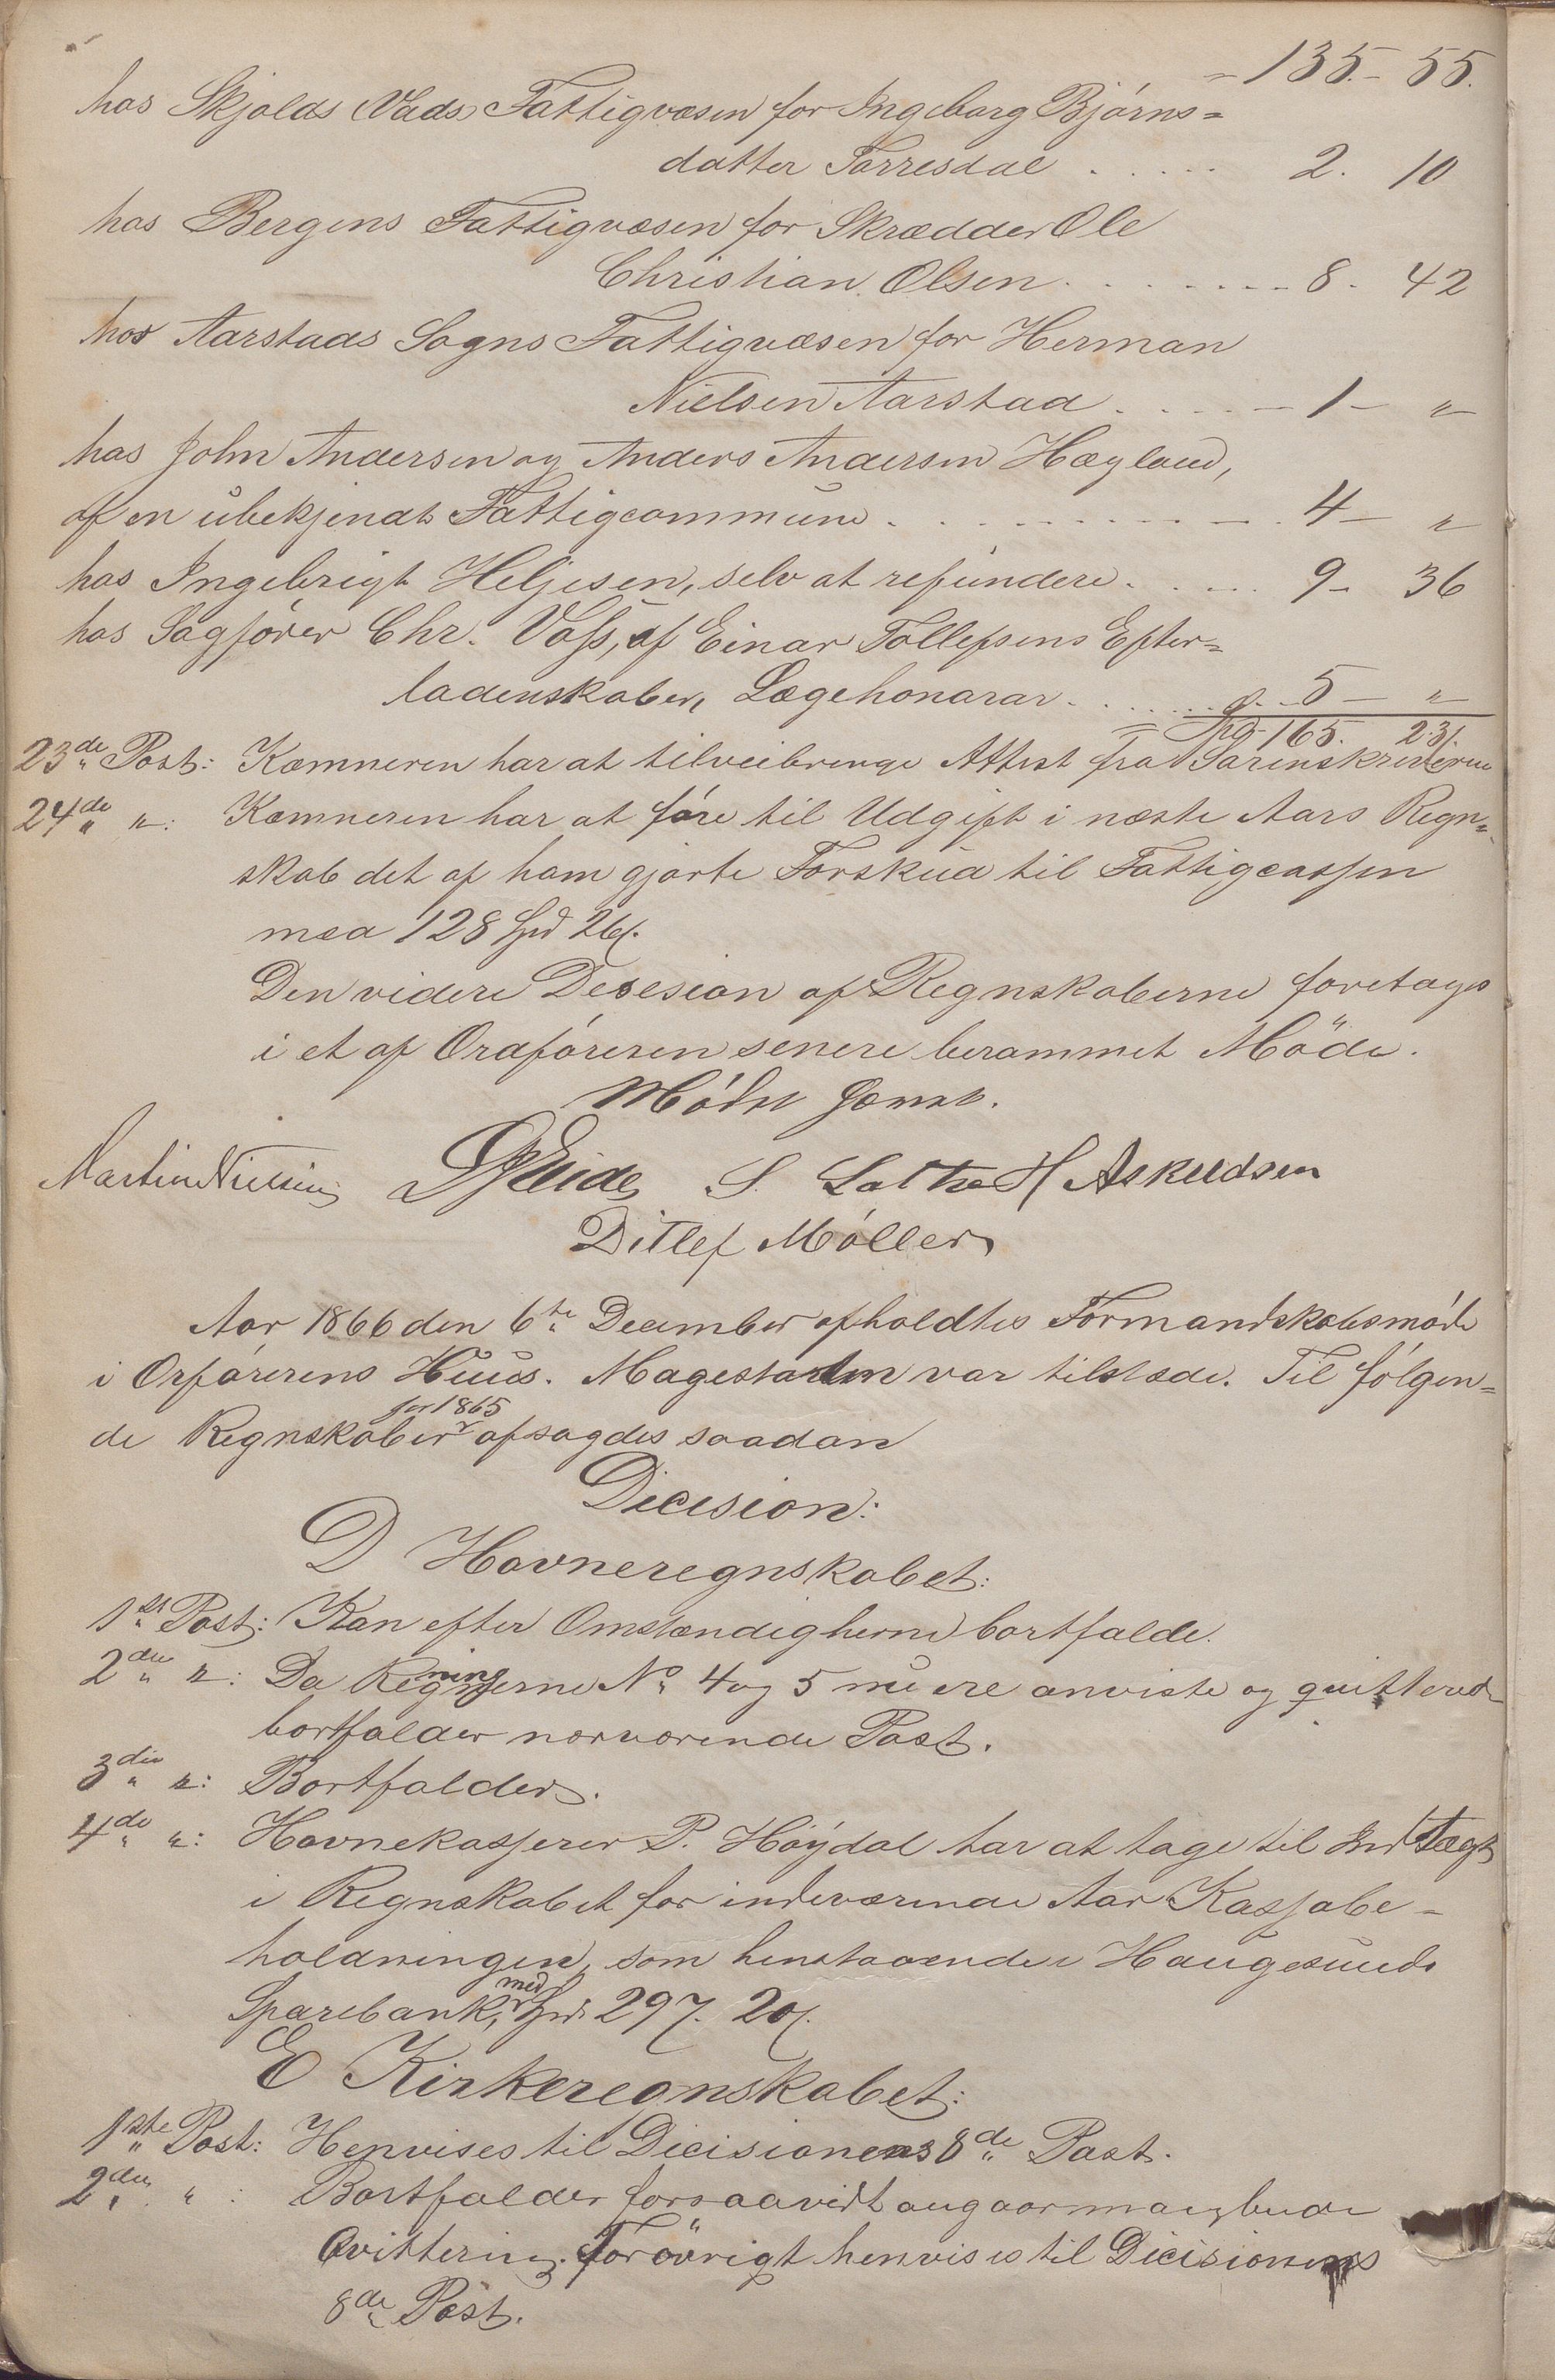 = 135.- 55.
hos Skjolds Vads Fattigvæsen for Ingeborg Bjørns=
datter Torresdal . . . . . 2. 10
hos Bergens Fattigvæsen for Skrædder Ole
Christian Olsen . . . . . . . . 8. 42
hos Aarstads Sogns Fattigvæsen for Herman
Nielsen Aarstad . . . . . . 1 - "
hos John Andersen og Anders Andersen Hægland,
af en ubekjendt Fattigcommune . . . . . . . . . . 4 - "
hos Ingebrigt Heljesen, selv at refundere . . . . . 9 - 36
hos Sagfører Chr. Voss, af Einar Tollefsens Efter=
ladenskaber, Lægehonorar . . . . . . . 5 - "
= Spd. 165. 23ſ.
23de Post: Kæmneren har at tilveiebringe Attest fra Sorenskriveren
24de ": Kæmneren har at føre til Udgift i næste Aars Regn=
skab det af ham gjorte Forskud til Fattigcassen
med 128 Spd 26ſ.
Den videre Desesion af Regnskaberne foretages
i et af Ordføreren senere berammet Møde.
Mødet hævet.
Martin Nielsen Eide S. Lothe H Askeldsen
Ditlef Møller
Aar 1866 den 6te December afholdtes Formandskabsmøde
i Orførerens Huus. Magestarten var tilstede. Til følgen=
de Regnskaber for 1865 afsagdes saadan
Dicision:
D Havneregnskabet:
1ste Post: Kan efter Omstændigherne bortfalde.
2den ": Da Regningerne No 4 og 5 nu ere anviste og quitterede
bortfalder nærværende Post.
3die ": Bortfalder.
4de ": Havnekasserer P. Høydal har at tage til Indtægt
i Regnskabet for indeværende Aar Kassabe-
holdningen, som henstaaende i Haugesunds
Sparebank, med Spd. 297. 20ſ.
E Kirkeregnskabet:
1ste Post: Henvises til Dicisionens 8de Post.
2den " : Bortfalder forsaavidt angaar manglende
Qvittering. Forøvrigt henvises til Dicisionens
8de Post.